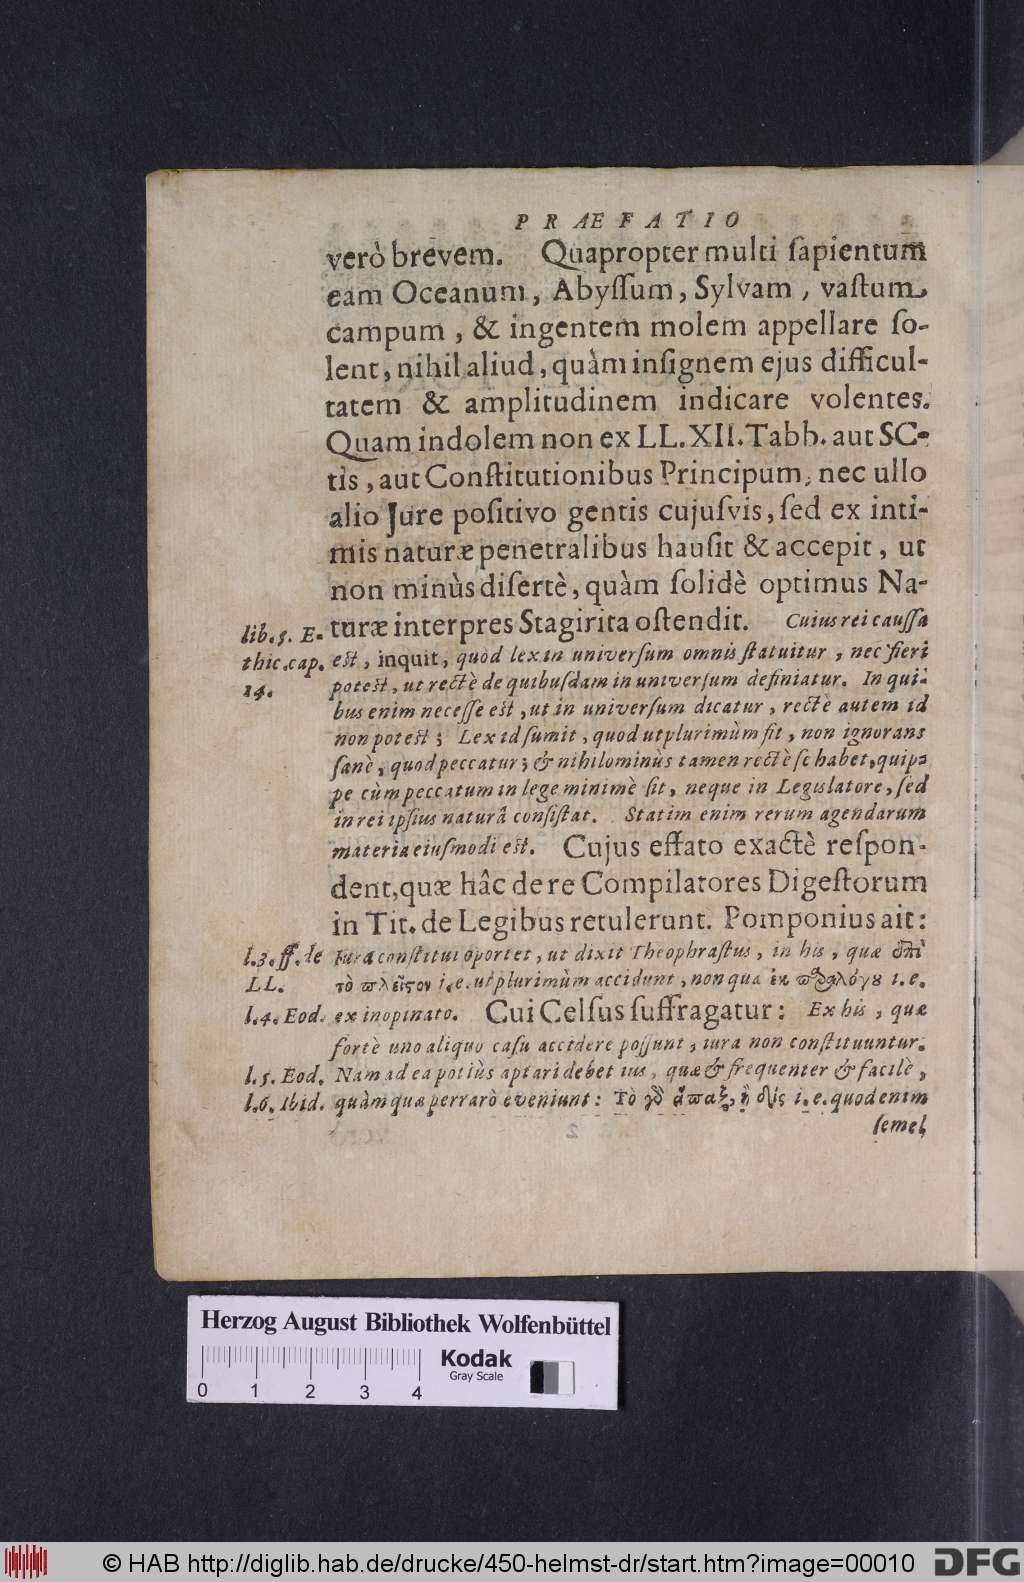 PRÆFATIO
verò brevem. Quapropter multi ſapientum
eam Oceanum, Abyſſum, Sylvam, vaſtum
campum, & ingentem molem appellare ſo-
lent, nihil aliud, quàm inſignem ejus difficul-
tatem & amplitudinem indicare volentes.
Quam indolem non ex LL. XII. Tabb. aut SC-
tis, aut Conſtitutionibus Principum, nec ullo
alio Jure poſitivo gentis cujuſvis, ſed ex inti-
mis naturæ penetralibus hauſit & accepit, ut
non minùs diſertè, quàm ſolidè optimus Na-
turæ interpres Stagirita oſtendit. Cuius rei cauſſa
lib. 5. E-
thic. cap.
14.
est, inquit, quòd lex in univerſum omnis ſtatuitur, nec fieri
potest, ut rectè de quibuſdam in univerſum definiatur. In qui-
bus enim neceſſe est, ut in univerſum dicatur, rectè autem id
non potest; Lex id ſumit, quod ut plurimùm fit, non ignorans
ſanè, quod peccatur; & nihilominùs tamen rectè ſe habet, quip-
pe cùm peccatum in lege minimè ſit, neque in Legislatore, ſed
in rei ipſius naturâ conſiſtat. Statim enim rerum agendarum
materia eiuſmodi est. Cujus effato exactè reſpon-
dent, quæ hâc de re Compilatores Digeſtorum
in Tit. de Legibus retulerunt. Pomponius ait:
l. 3. ff. de
LL.
Iura conſtitui oportet, ut dixit Theophraſtus, in his, quæ ἐπὶ
τὸ πλεῖςον i. e. ut plurimùm accidunt, non qua ἐκ παραλόγου i. e.
l. 4. Eod.
ex inopinato. Cui Celſus ſuffragatur: Ex his, quæ
fortè uno aliquo caſu accidere poſſunt, iura non conſtituuntur.
l. 5. Eod.
Nam ad ea potiùs aptari debet ius, quæ & frequenter & facilè,
l. 6. Ibid.
quàm quæ perrarò eveniunt: Τὸ γὰρ ἅπαξ, ἢ δὶς i. e. quod enim
ſemel
Herzog August Bibliothek Wolfenbüttel
0 1 2 3 4
Kodak
Gray Scale
© HAB http://diglib.hab.de/drucke/450-helmst-dr/start.htm?image=00010
DFG